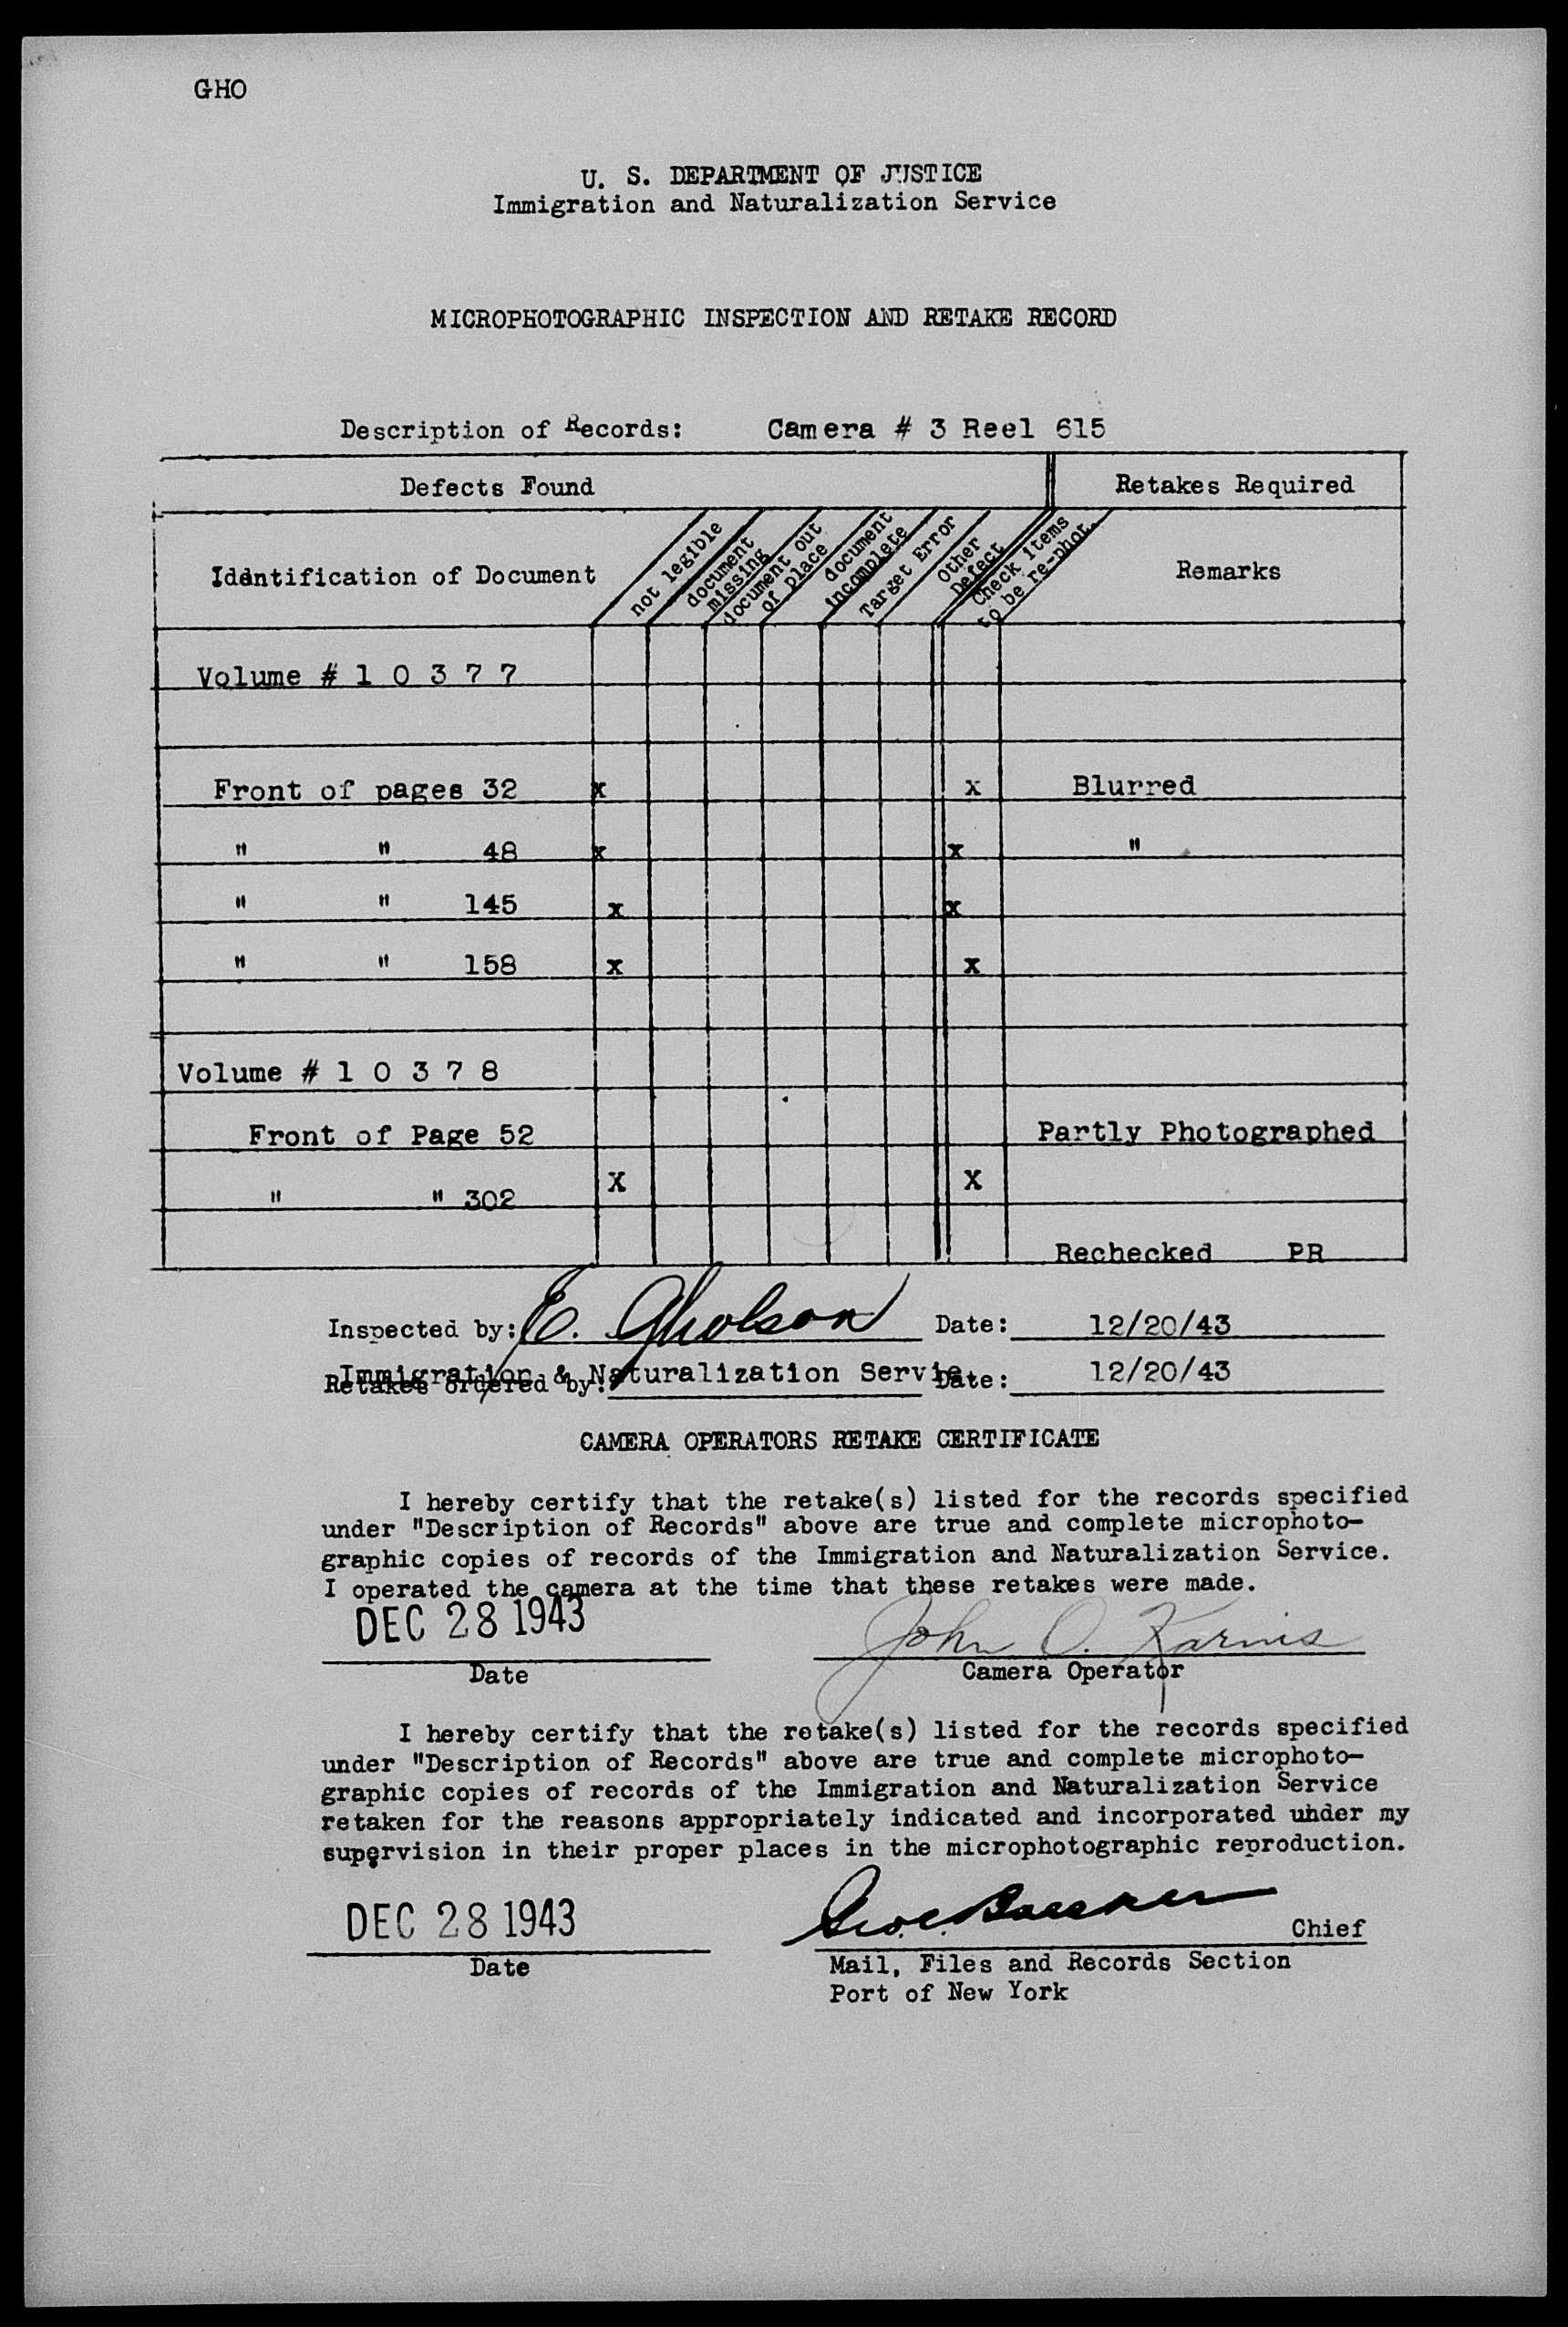 GHO
U. S. DEPARTMENT OF JUSTICE
Immigration and Naturalization Service
MICROPHOTOGRAPHIC INSPECTION AND RETAKE RECORD
Description of Records: Camera # 3 Reel 615
Defects Found Retakes Required
Identification of Document
not legible
document missing
document out of place
document incomplete
Target Error
Other Defect
Check items to be re-phot.
Remarks
Volume # 1 0 3 7 7
Front of pages 32 x x Blurred
" " 48 x x "
" " 145 x x
" " 158 x x
Volume # 1 0 3 7 8
Front of Page 52 Partly Photographed
" " 302 X X
Rechecked PR
Inspected by: E. Gholson Date: 12/20/43
Immigration & Naturalization Servic
Retakes ordered by: Date: 12/20/43
CAMERA OPERATORS RETAKE CERTIFICATE
I hereby certify that the retake(s) listed for the records specified
under "Description of Records" above are true and complete microphoto-
graphic copies of records of the Immigration and Naturalization Service.
I operated the camera at the time that these retakes were made.
DEC 28 1943 John O.
Date Camera Operator
I hereby certify that the retake(s) listed for the records specified
under "Description of Records" above are true and complete microphoto-
graphic copies of records of the Immigration and Naturalization Service
retaken for the reasons appropriately indicated and incorporated under my
supervision in their proper places in the microphotographic reproduction.
DEC 28 1943 Chief
Date Mail, Files and Records Section
Port of New York